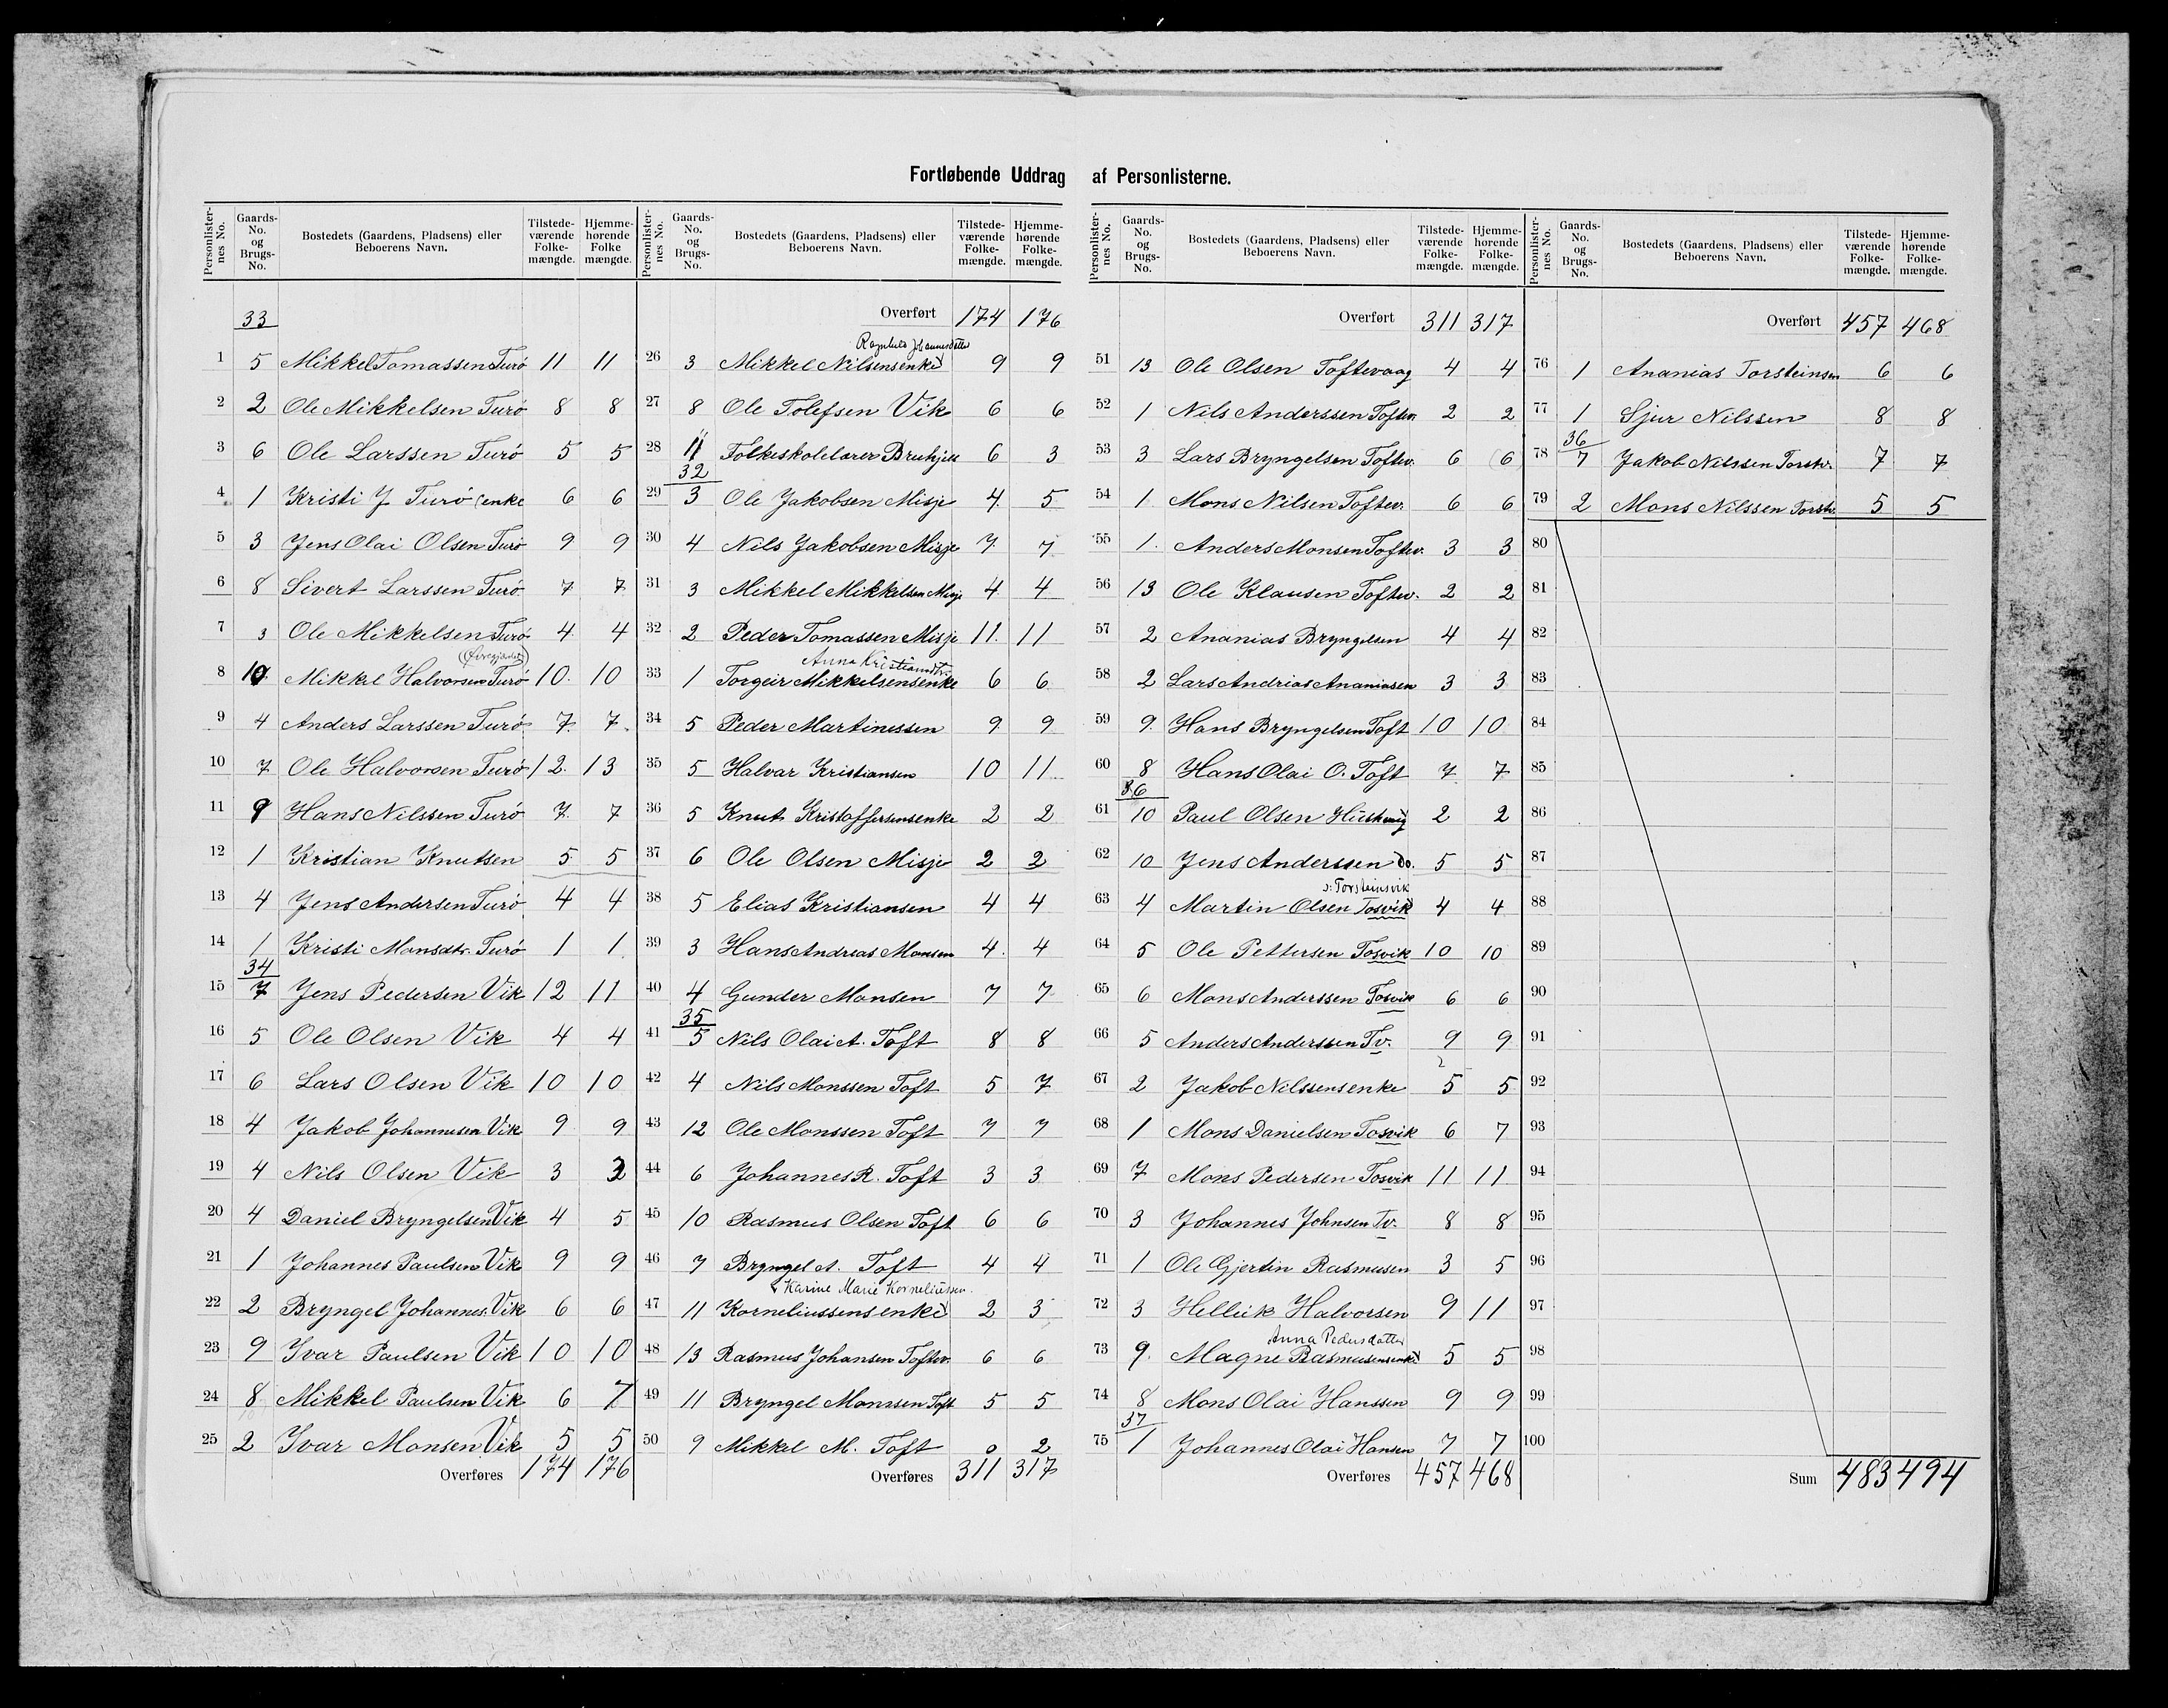 Fortløbende Uddrag af Personlisterne.
Personlister-nes No. Gaards-No. og Brugs-No. Bostedets (Gaardens, Pladsens) eller Beboerens Navn. Tilstede-værende Folke-mængde. Hjemme-hørende Folke mængde.
33
1 5 Mikkel Tomassen Turö 11 11
2 2 Ole Mikkelsen Turö 8 8
3 6 Ole Larssen Turö 5 5
4 1 Kristi J Turö (enke 6 6
5 3 Jens Olai Olsen Turö 9 9
6 8 Sivert Larssen Turö 7 7
7 3 Ole Mikkelsen Turö 4 4
8 10 Mikkel Halvorsen Turö 10 10
9 4 Anders Larssen Turö 7 7
10 7 Ole Halvorsen Turö 12 13
11 9 Hans Nilssen Turö 7 7
12 1 Kristian Knutsen 5 5
13 4 Jens Andersen Turö 4 4
14 1 Kristi Monsdtr. Turö 1 1
34
15 7 Jens Pedersen Vik 12 11
16 5 Ole Olsen Vik 4 4
17 6 Lars Olsen Vik 10 10
18 4 Jakob Johannesen Vik 9 9
19 4 Nils Olsen Vik 3 2
20 4 Daniel Bryngelsen Vik 4 5
21 1 Johannes Paulsen Vik 9 9
22 2 Bryngel Johannes. Vik 6 6
23 9 Ivar Paulsen Vik 10 10
24 8 Mikkel Paulsen Vik 6 7
25 2 Ivar Monsen Vik 5 5
Overføres 174 176
Personlister-nes No. Gaards-No. og Brugs-No. Bostedets (Gaardens, Pladsens) eller Beboerens Navn. Tilstede-værende Folke-mængde. Hjemme-hørende Folke-mængde.
Overført 174 176
Ragnhild Johannesdatter
26 3 Mikkel Nilsens enke 9 9
27 8 Ole Tolefsen Vik 6 6
28 11 Folkeskolelærer 6 3
32
29 3 Ole Jakobsen Misje 4 5
30 4 Nils Jakobsen Misje 7 7
31 3 Mikkel Mikkelsen Misje 4 4
32 2 Peder Tomassen Misje 11 11
Anna Kristiansdtr.
33 1 Torgeir Mikkelsens enke 6 6
34 5 Peder Martinussen 9 9
35 5 Halvar Kristiansen 10 11
36 5 Knut Kristoffersens enke 2 2
37 6 Ole Olsen Misje 2 2
38 5 Elias Kristiansen 4 4
39 3 Hans Andreas Monsen 4 4
40 4 Gunder Monsen 7 7
35
41 5 Nils Olai A. Toft 8 8
42 4 Nils Monssen Toft 5 7
43 12 Ole Monssen Toft 7 7
44 6 Johannes R. Toft 3 3
45 10 Rasmus Olsen Toft 6 6
46 7 Bryngel A. Toft 4 4
Karine Marie Korneliussen
47 11 Korneliussens enke 2 3
48 13 Rasmus Johansen Toftev. 6 6
49 11 Bryngel Monssen Toft 5 5
50 9 Mikkel M. Toft 0 2
Overføres 311 317
Personlister-nes No. Gaards-No. og Brugs-No. Bostedets (Gaardens, Pladsens) eller Beboerens Navn. Tilstede-værende Folke-mængde. Hjemme-hørende Folke-mængde.
Overført 311 317
51 13 Ole Olsen Toftevaag 4 4
52 1 Nils Anderssen Toftev. 2 2
53 3 Lars Bryngelsen Toftev. 6 6
54 1 Mons Nilsen Toftev. 6 6
55 1 Anders Monsen Toftev. 3 3
56 13 Ole Klausen Toftev. 2 2
57 2 Ananias Bryngelsen 4 4
58 2 Lars Andrias Ananiasen 3 3
59 9 Hans Bryngelsen Toft 10 10
60 8 Hans Olai O. Toft 7 7
36
61 10 Paul Olsen 2 2
62 10 Jens Anderssen do. 5 5
ɔ: Torsteinsvik
63 4 Martin Olsen Tosvik 4 4
64 5 Ole Pettersen Tosvik 10 10
65 6 Mons Anderssen Tosvik 6 6
66 5 Anders Anderssen Tv. 9 9
67 2 Jakob Nilssens enke 5 5
68 1 Mons Danielsen Tosvik 6 7
69 7 Mons Pedersen Tosvik 11 11
70 3 Johannes Johnsen Tv. 8 8
71 1 Ole Gjertin Rasmusen 3 5
72 3 Hellick Halvorsen 9 11
Anna Pedersdatter
73 9 Magne Rasmusens enke 5 5
74 8 Mons Olai Hanssen 9 9
37
75 1 Johannes Olai Hansen 7 7
Overføres 457 468
Personlister-nes No. Gaards-No. og Brugs-No. Bostedets (Gaardens, Pladsens) eller Beboerens Navn. Tilstede-værende Folke-mængde. Hjemme-hørende Folke-mængde.
Overført 457 468
76 1 Ananias Torsteinsen 6 6
77 1 Sjur Nilssen 8 8
36
78 7 Jakob Nilssen Torstv. 7 7
79 2 Mons Nilssen Torstv. 5 5
80
81
82
83
84
85
86
87
88
89
90
91
92
93
94
95
96
97
98
99
100
Sum 483 494